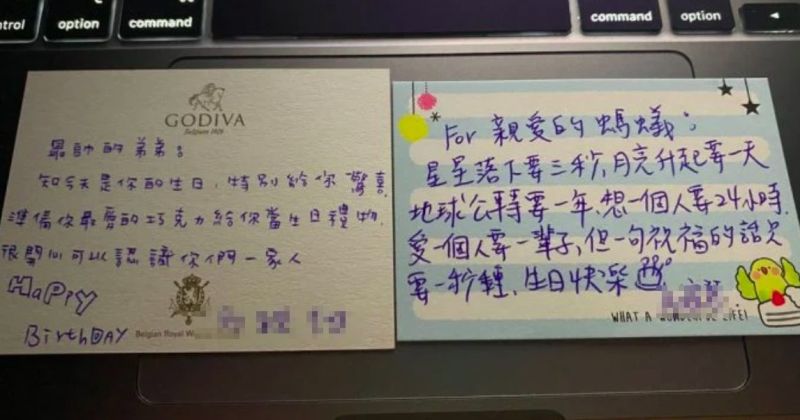 control
option
command
command
option
GODIVA
Belgium 1926
最帥的弟弟:
知今天是你的生日,特別給你驚喜
準備你最愛的巧克力給你當生日禮物.
很開心可以認識你們一家人
HaPPy
BirthDAY
Belgian Royal
For 親愛的螞蟻:
星星落下要三秒,月亮升起要一天
地球公轉要一年,想一個人要24小時,
愛一個人要一輩子,但一句祝福的話只
要一秒鐘,生日快樂
WHAT A WONDERFUL LIFE!